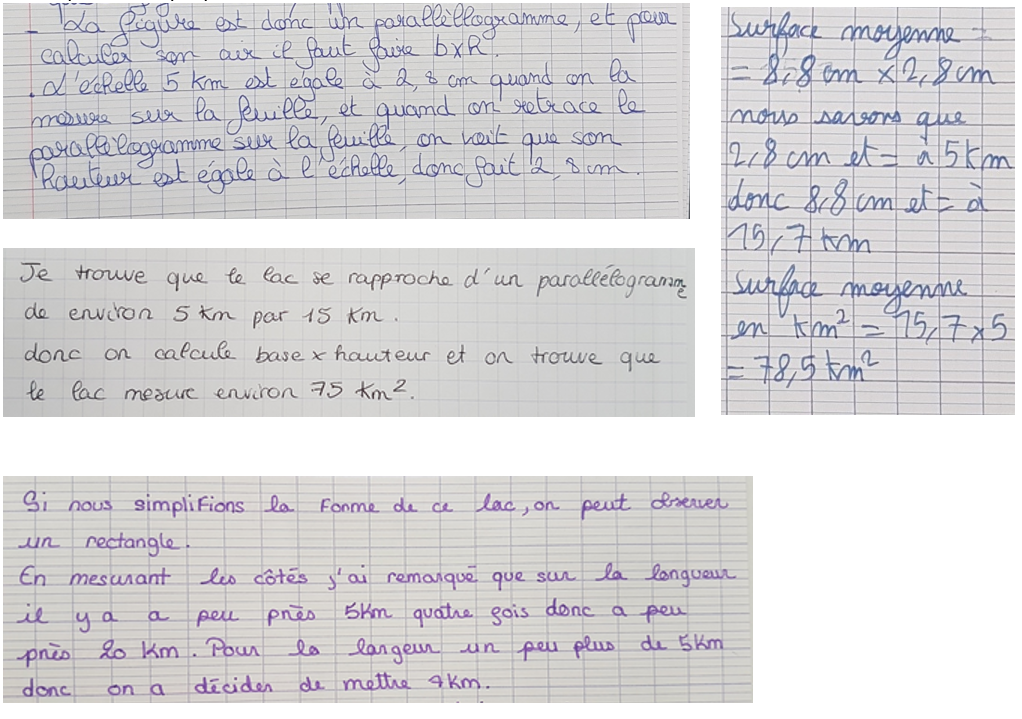 - La figure est donc un parallèllogramme, et pour
calculer son air il faut faire b x h.
. L'échelle 5 km est égale à 2,8 cm quand on la
mesure sur la feuille, et quand on retrace le
parallèlogramme sur la feuille, on voit que son
hauteur est égale à l'échelle, donc fait 2,8 cm.
Surface moyenne =
= 8,8 cm x 2,8 cm
nous savons que
2,8 cm et = à 5 km
donc 8,8 cm et = à
15,7 km
surface moyenne
en km² = 15,7 x 5
= 78,5 km²
Je trouve que le lac se rapproche d'un parallélogramme
de environ 5 km par 15 km.
donc on calcule base x hauteur et on trouve que
le lac mesure environ 75 km².
Si nous simplifions la forme de ce lac, on peut observer
un rectangle.
En mesurant les côtés j'ai remarqué que sur la longueur
il y a a peu près 5km quatre fois donc a peu
près 20 km. Pour la largeur un peu plus de 5km
donc on a décider de mettre 7km.